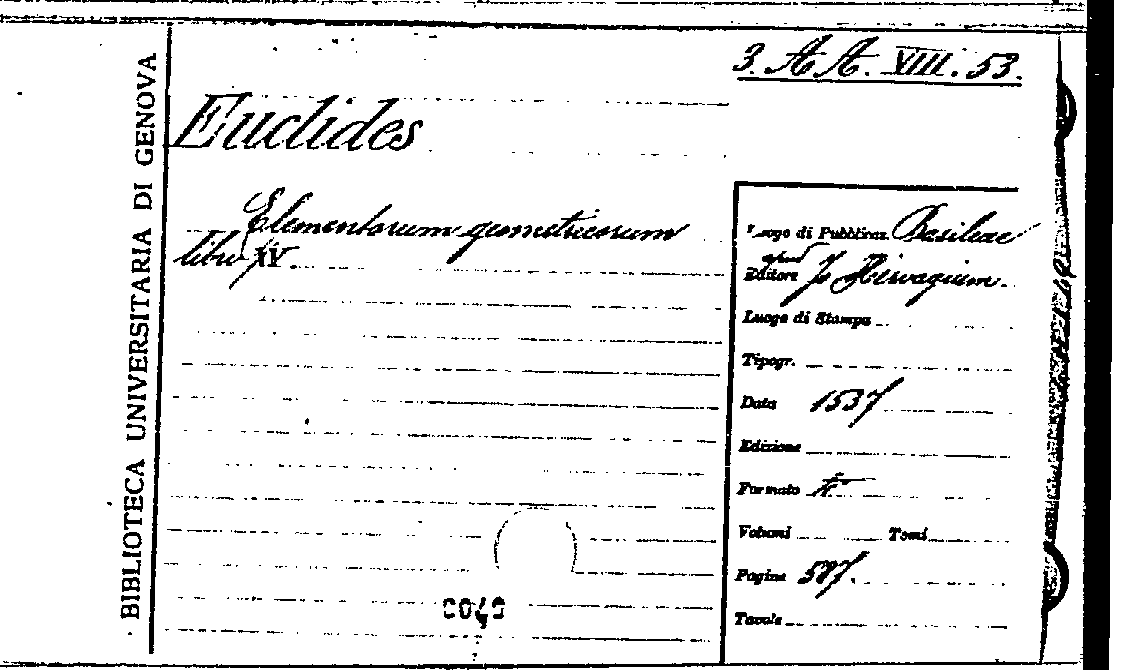 3. AA. VIII. 53.
BIBLIOTECA UNIVERSITARIA DI GENOVA
Euclides
Elementorum geometricorum
libri XV.
Luogo di Pubblicaz. Basileae
apud
Editore Jo Hervagium.
Luogo di Stampa
Tipogr.
Data 1537
Edizione
Formato
Volumi Tomi
Pagine 587.
Tavole